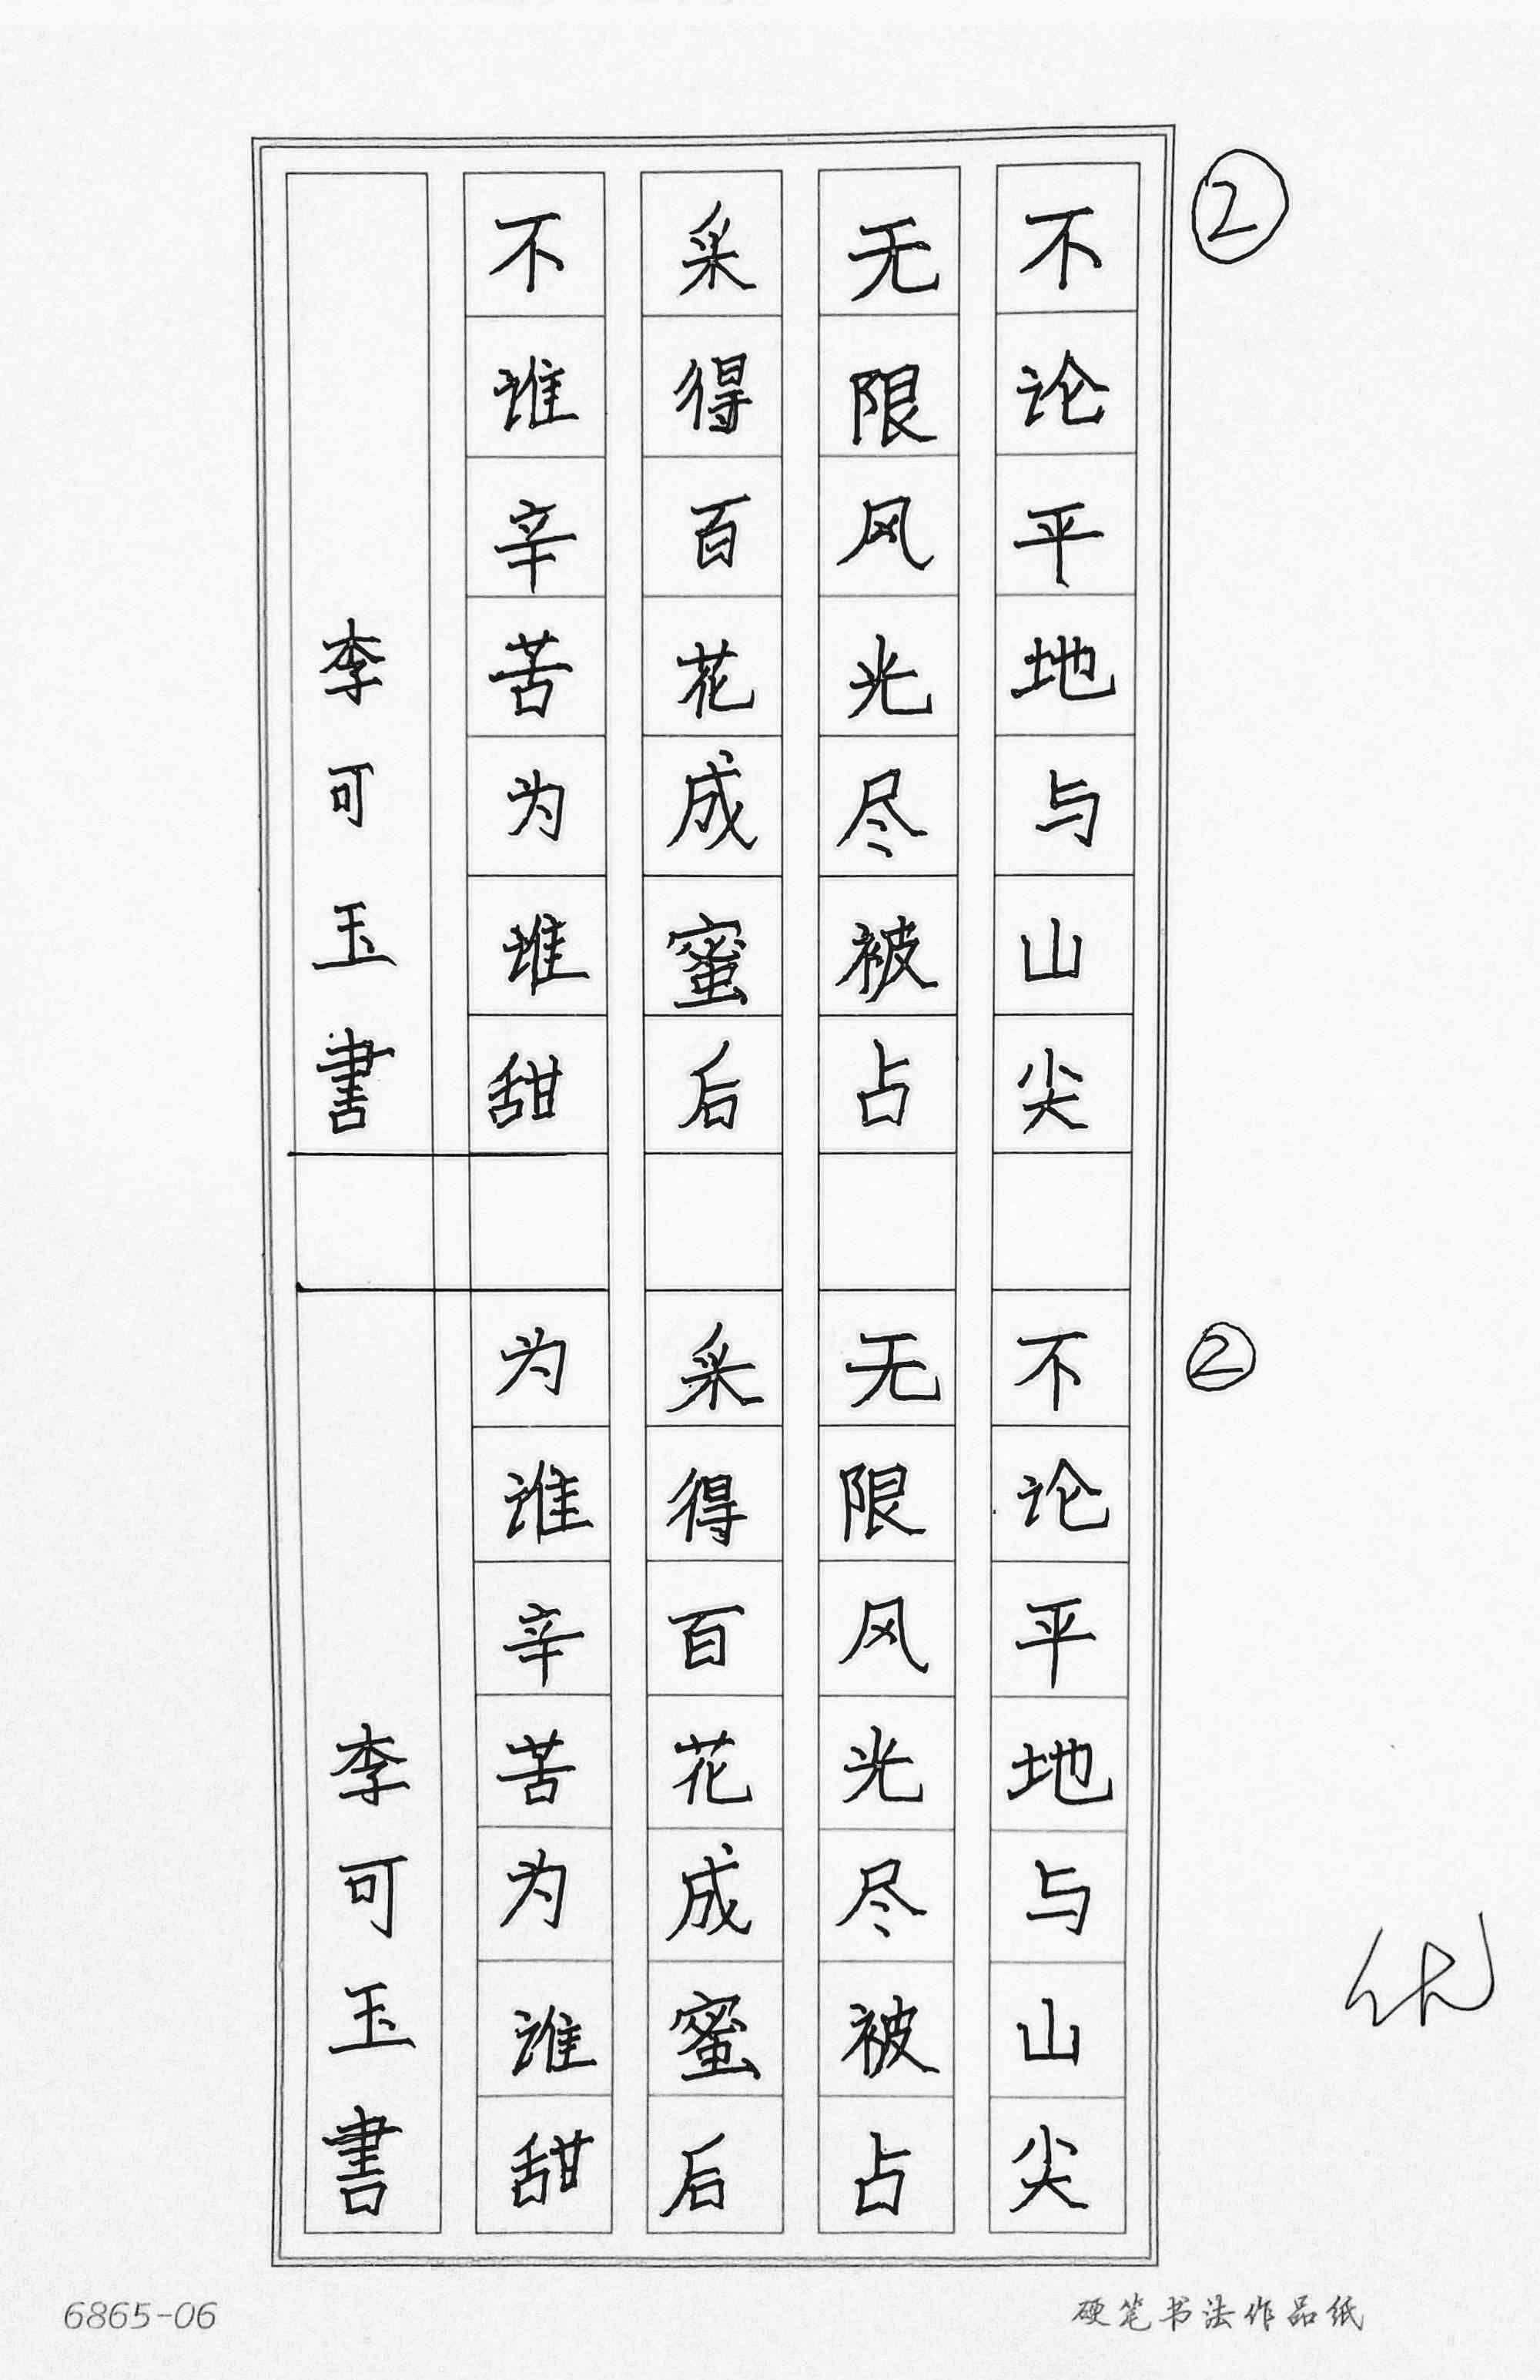 ②
不论平地与山尖
无限风光尽被占
采得百花成蜜后
不谁辛苦为谁甜
李可玉書
②
不论平地与山尖
无限风光尽被占
采得百花成蜜后
为谁辛苦为谁甜
李可玉書
优
6865-06
硬笔书法作品纸